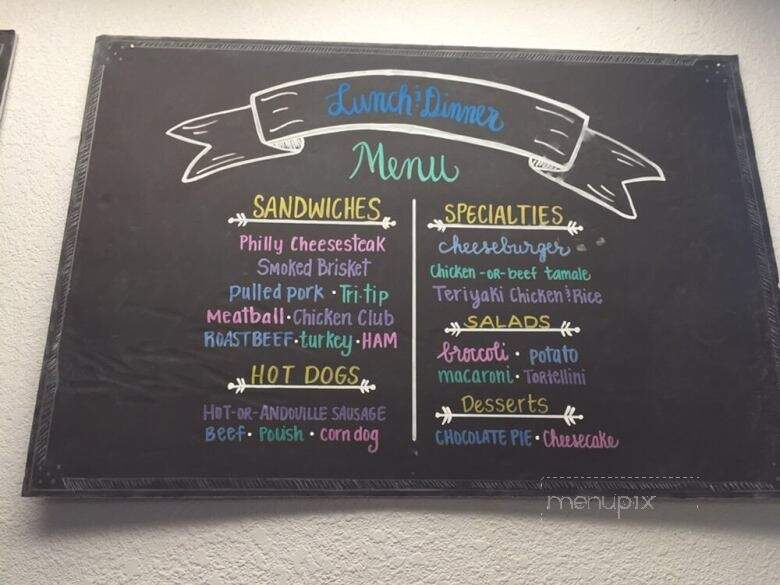 Lunch & Dinner
Menu
SANDWICHES
Philly Cheesesteak
Smoked Brisket
pulled pork · Tri-tip
Meatball · Chicken Club
ROASTBEEF · turkey · HAM
HOT DOGS
HOT-OR-ANDOUILLE SAUSAGE
Beef · Polish · corn dog
SPECIALTIES
cheeseburger
Chicken-OR-beef tamale
Teriyaki Chicken & Rice
SALADS
broccoli · potato
macaroni · Tortellini
Desserts
CHOCOLATE PIE · Cheesecake
menupix